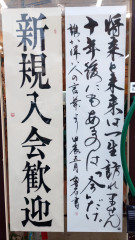 将来や未来は一生訪れません
十年後にもあるのは今だけ。
偉人の言葉より 甲辰五月
新規入会歓迎